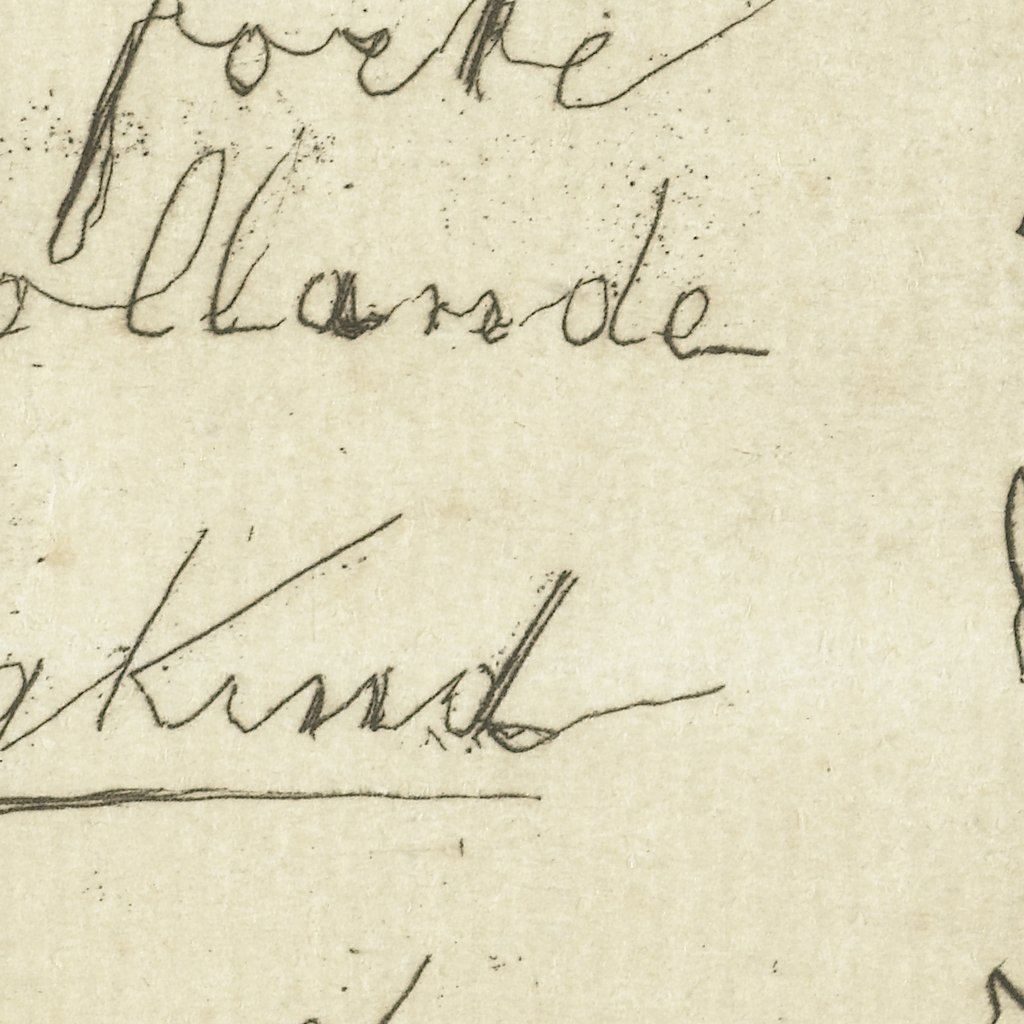 porte
ollande
gkind